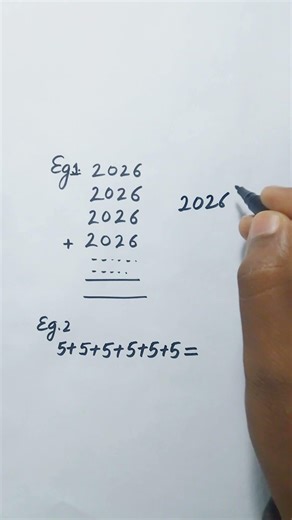 Eg1: 2026
2026
2026
+ 2026
2026
Eg.2
5+5+5+5+5+5=